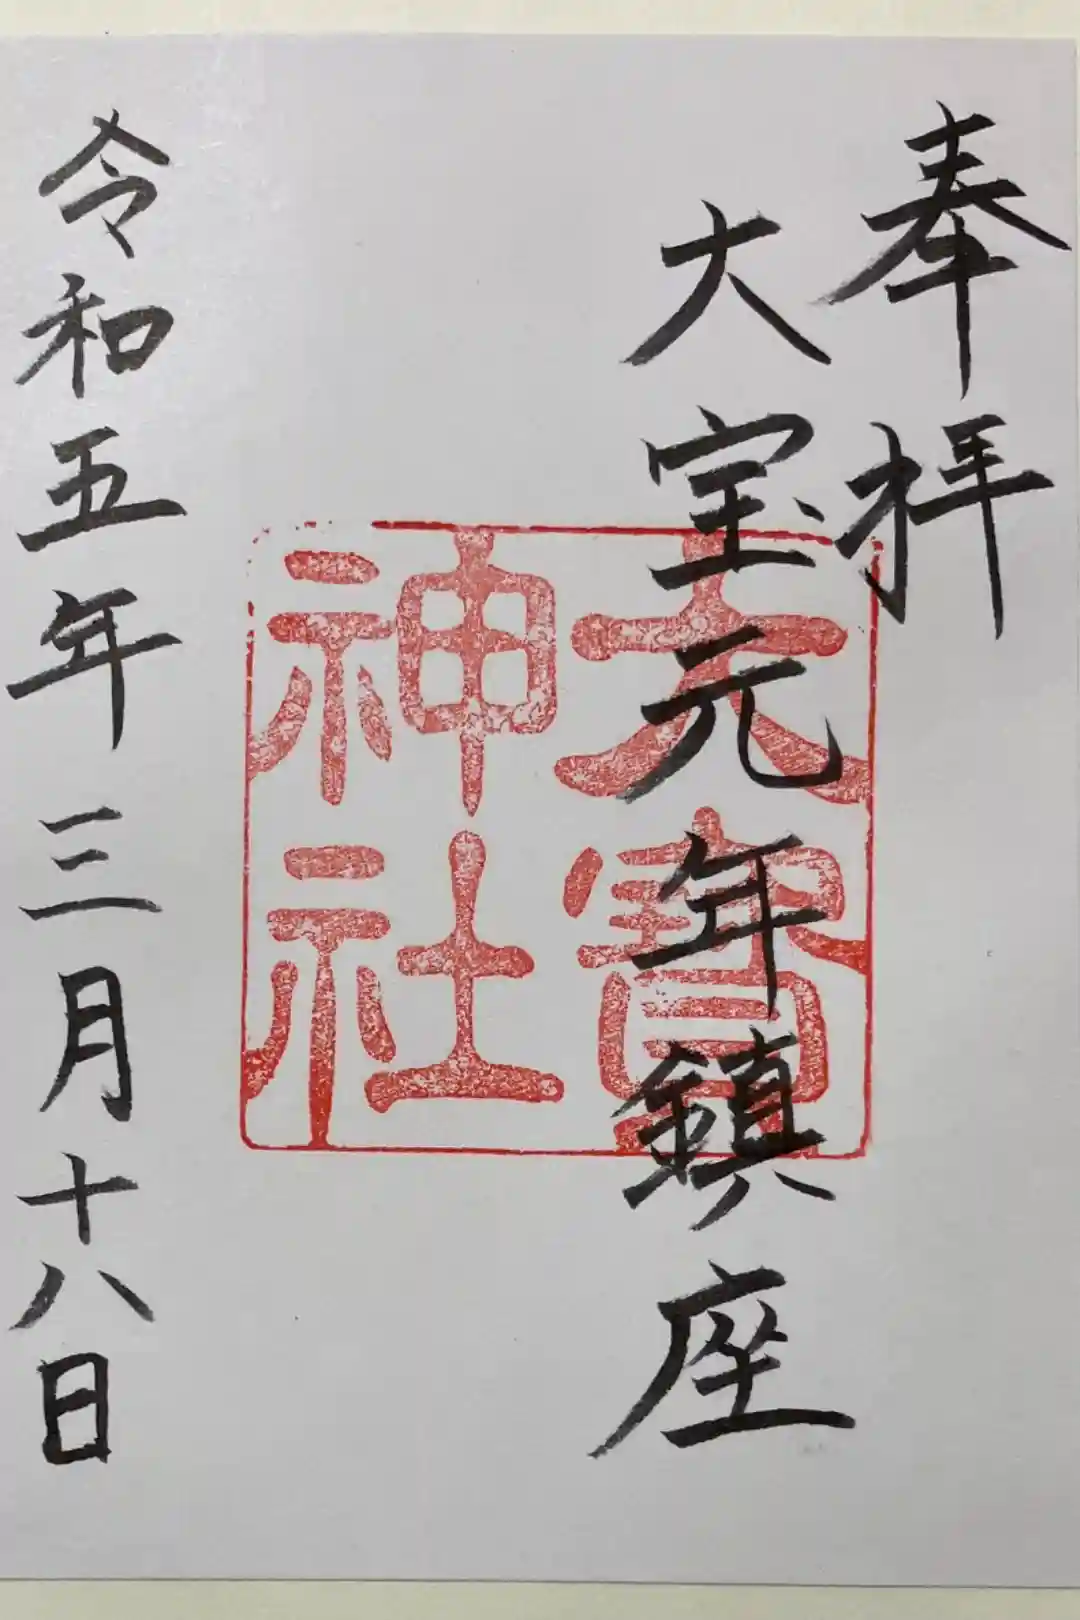 奉拝
大宝元年鎮座
大寳神社
令和五年三月十八日